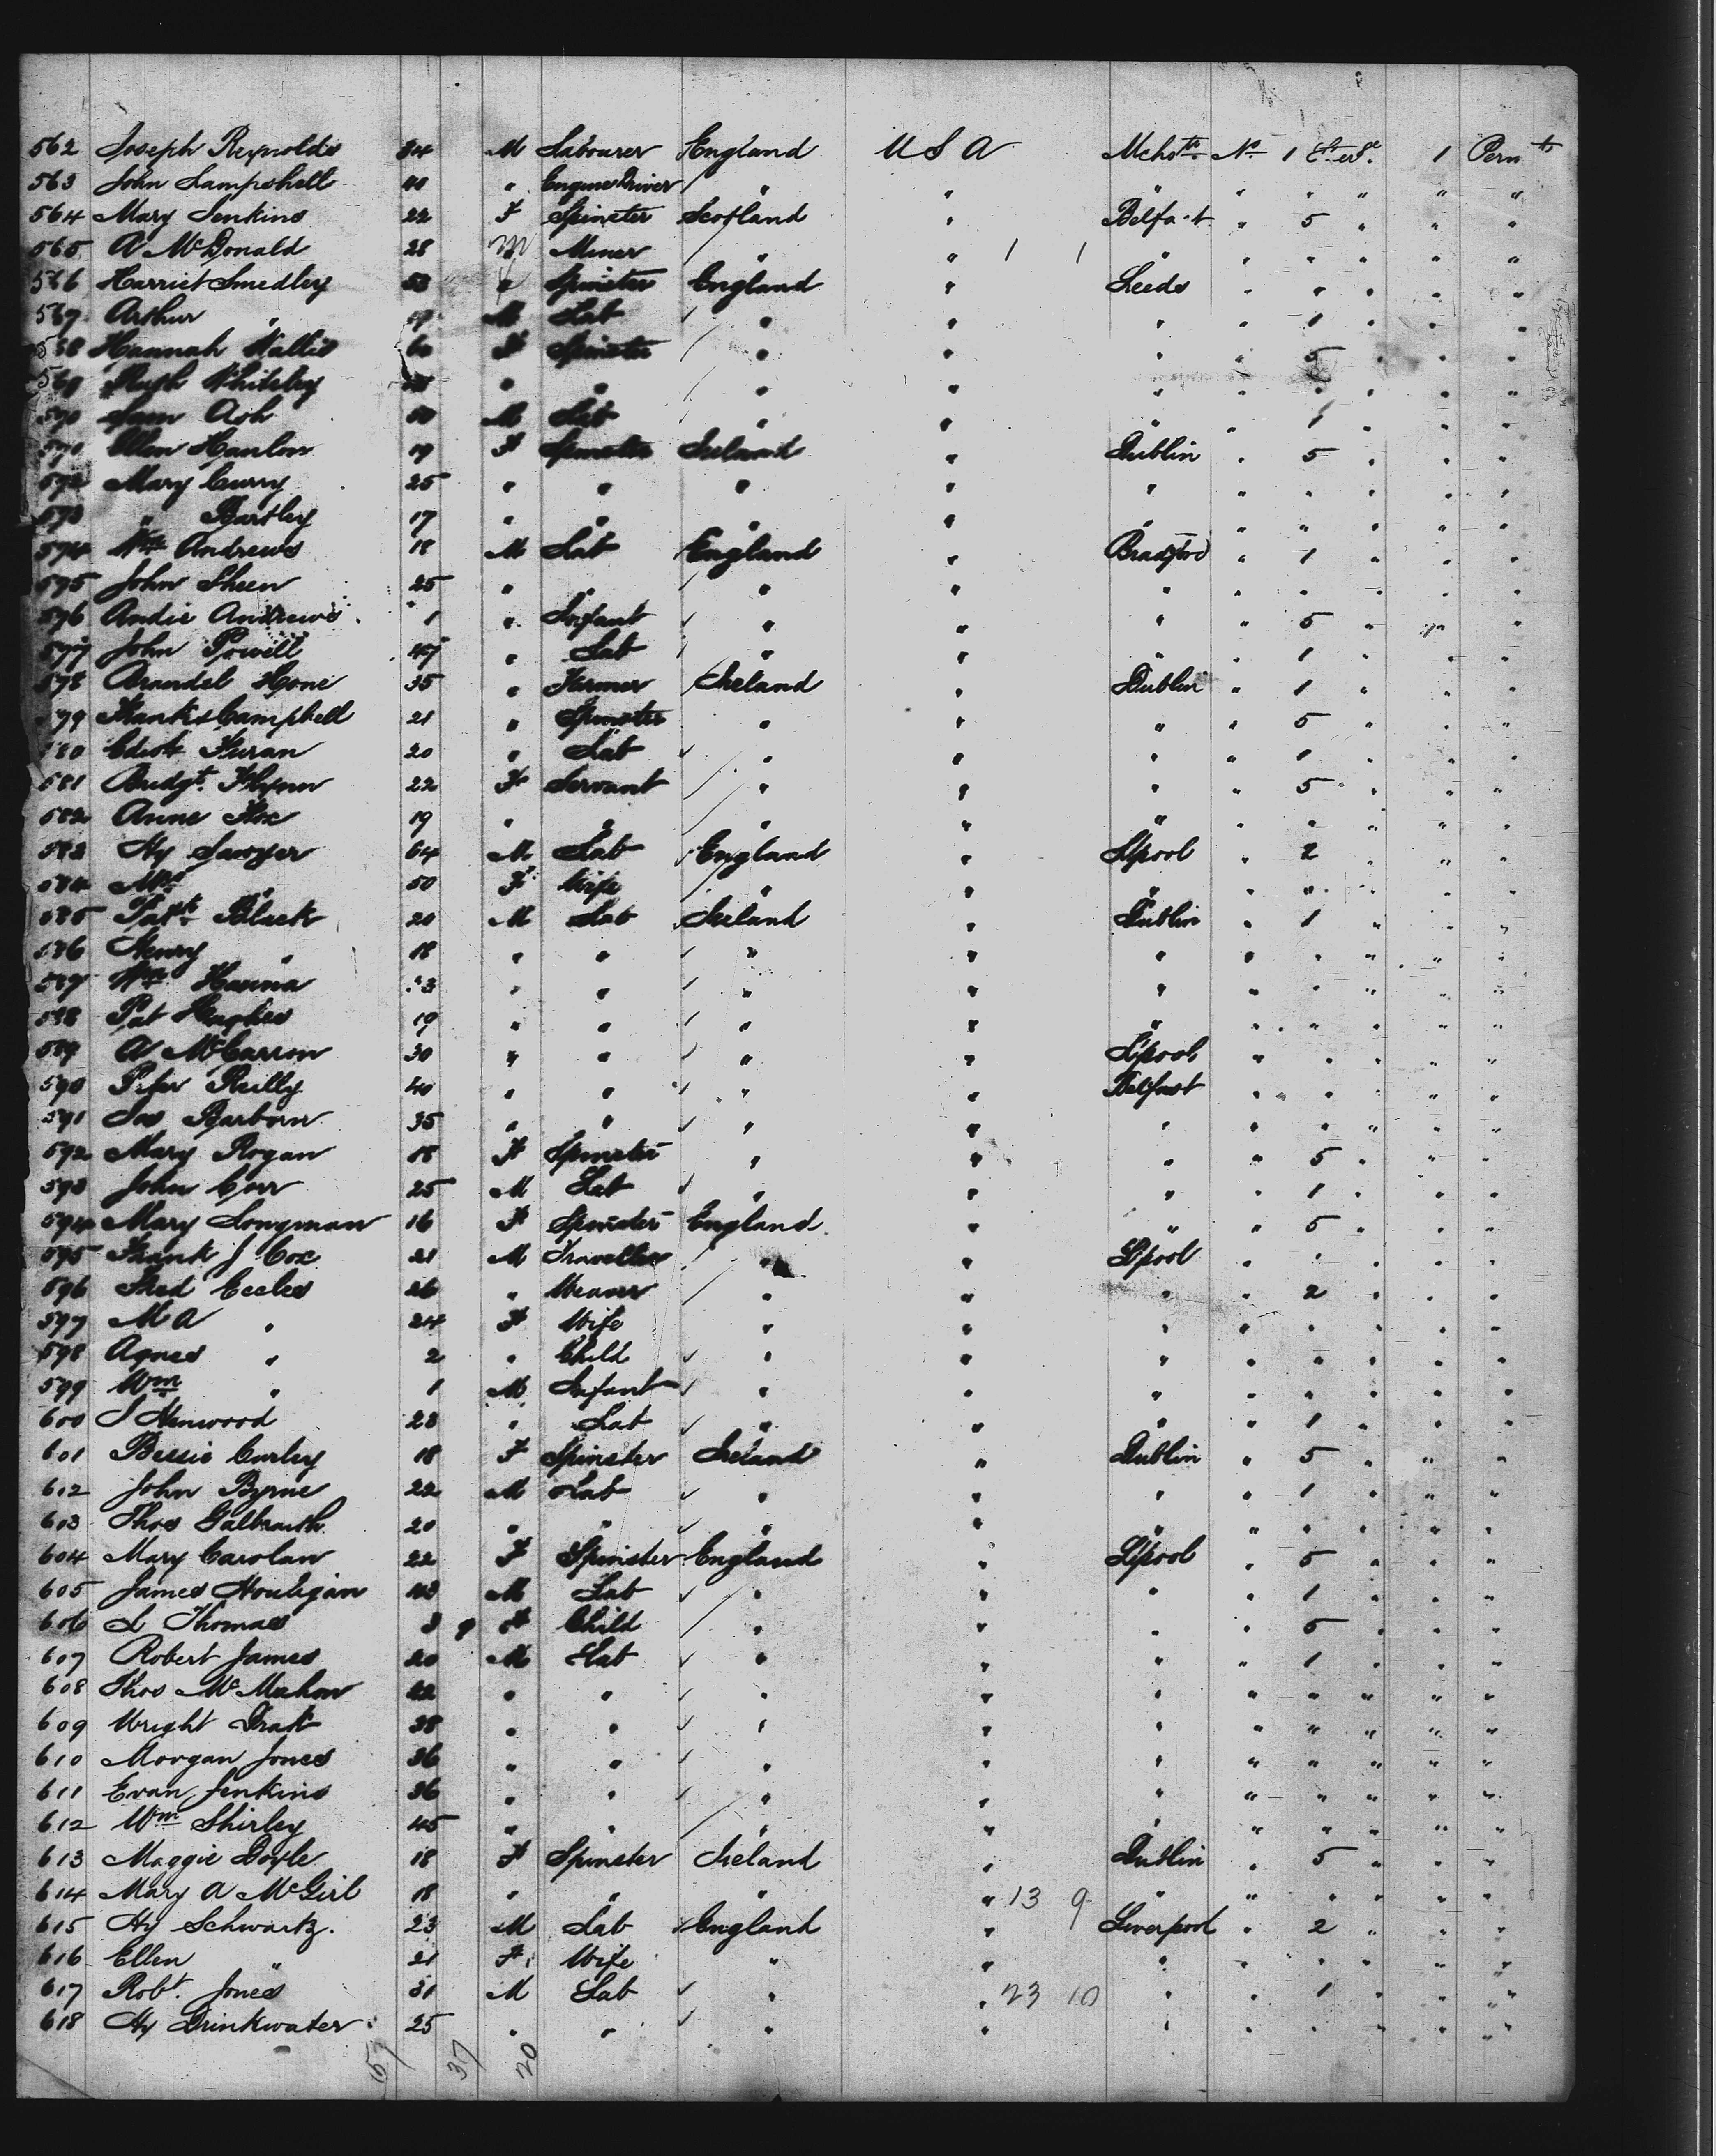 562 Joseph Reynolds 34 M Labourer England U S A Mchstr No 1 St erge 1 Perm
563 John Lampshell 40 " Engine Driver " " " " " " " "
564 Mary Jenkins 22 F Spinster Scotland " Belfast " 5 " " "
565 A McDonald 28 M Miner " " 1 1 " " " " " "
566 Harriet Smedley 53 " Spinster England " Leeds " " " " "
567 Arthur " 19 M Lab " " " " 1 " " "
568 Hannah Wallis 60 F Spinster " " " " 5 " " "
569 Whiteley " " " " " " " " " "
570 Sam Ash 50 M Lab " " " " 1 " " "
571 Ellen Hanlon 19 F Spinster Ireland " Dublin " 5 " " "
572 Mary Curry 25 " " " " " " " " " "
573 " Bartley 17 " " " " " " " " " "
574 Wm Andrews 18 M Lab England " Bradford " 1 " " "
575 John Sheen 25 " " " " " " " " " "
576 Andie Andrews 1 " Infant " " " " 5 " " "
577 John Powell 47 " Lab " " " " 1 " " "
578 Arundel Hone 35 " Farmer Ireland " Dublin " 1 " " "
579 Campbell 21 " Spinster " " " " 5 " " "
580 20 " Lab " " " " 1 " " "
581 Bridgt. Flynn 22 F Servant " " " " 5 " " "
582 Anne Fox 19 " " " " " " " " " "
583 Hy Sawyer 64 M Lab England " Lpool " 2 " " "
584 Mrs " 50 F Wife " " " " " " " "
585 Patk Black 20 M Lab Ireland " Dublin " 1 " " "
586 Henry " 18 " " " " " " " " " "
587 Wm Hanna 23 " " " " " " " " " "
588 Pat Hughes 19 " " " " " " " " " "
589 A McCarron 30 " " " " Lpool " " " " "
590 Peter Reilly 40 " " " " Belfast " " " " "
591 Jas Barborn 35 " " " " " " " " " "
592 Mary Rogan 18 F Spinster " " " " 5 " " "
593 John Corr 25 M Lab " " " " 1 " " "
594 Mary Longman 16 F Spinster England " " " 5 " " "
595 Frank J Cox 21 M Traveller " " Lpool " " " " "
596 Fred Eccles 26 " Weaver " " " " 2 " " "
597 M A " 24 F Wife " " " " " " " "
598 Agnes " 2 " Child " " " " " " " "
599 Wm " 1 M Infant " " " " " " " "
600 J Henwood 23 " Lab " " " " 1 " " "
601 Bessie Curley 18 F Spinster Ireland " Dublin " 5 " " "
612 John Byrne 22 M Lab " " " " 1 " " "
613 Thos Galbraith 20 " " " " " " " " " "
604 Mary Carolan 22 F Spinster England " Lpool " 5 " " "
605 James Houligan 43 M Lab " " " " 1 " " "
606 L Thomas 3 9 F Child " " " " 5 " " "
607 Robert James 20 M Lab " " " " 1 " " "
608 Thos McMahon 22 " " " " " " " " " "
609 Wright 38 " " " " " " " " " "
610 Morgan Jones 36 " " " " " " " " " "
611 Evan Jenkins 36 " " " " " " " " " "
612 Wm Shirley 45 " " " " " " " " " "
613 Maggie Doyle 18 F Spinster Ireland " Dublin " 5 " " "
614 Mary A McGirl 18 " " " " 13 9 " " " " " "
615 Hy Schwartz. 23 M Lab England " Liverpool " 2 " " "
616 Ellen " 21 F Wife " " " " " " " "
617 Robt. Jones 31 M Lab " " 23 10 " " 1 " " "
618 Hy Drinkwater 25 " " " " " " " " " "
57 37 20